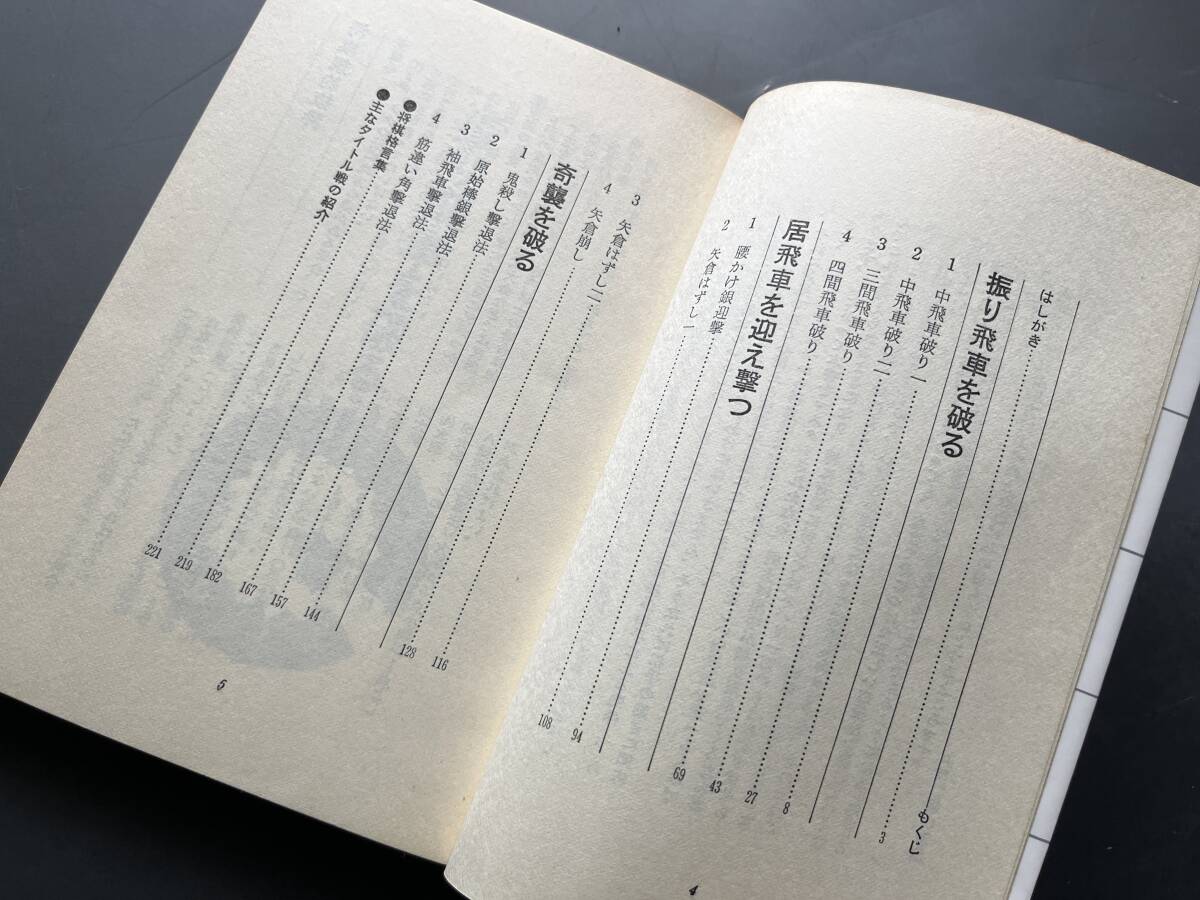 もくじ
はしがき……3
振り飛車を破る
1 中飛車破り一……8
2 中飛車破り二……27
3 三間飛車破り……43
4 四間飛車破り……69
居飛車を迎え撃つ
1 腰かけ銀迎撃……94
2 矢倉はずし一……108
4
3 矢倉はずし二……116
4 矢倉崩し……128
奇襲を破る
1 鬼殺し撃退法……144
2 原始棒銀撃退法……157
3 袖飛車撃退法……167
4 筋違い角撃退法……182
●将棋格言集……219
●主なタイトル戦の紹介……221
5